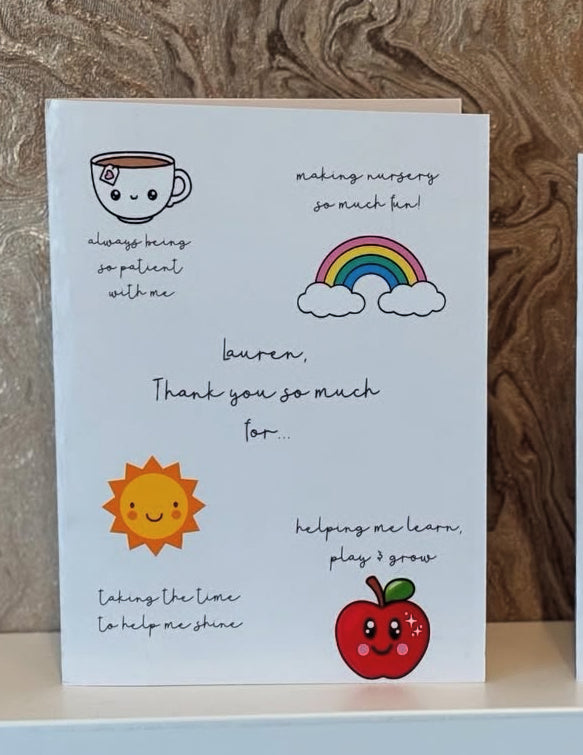 making nursery
so much fun!
always being
so patient
with me
Lauren,
Thank you so much
for...
helping me learn,
play & grow
taking the time
to help me shine